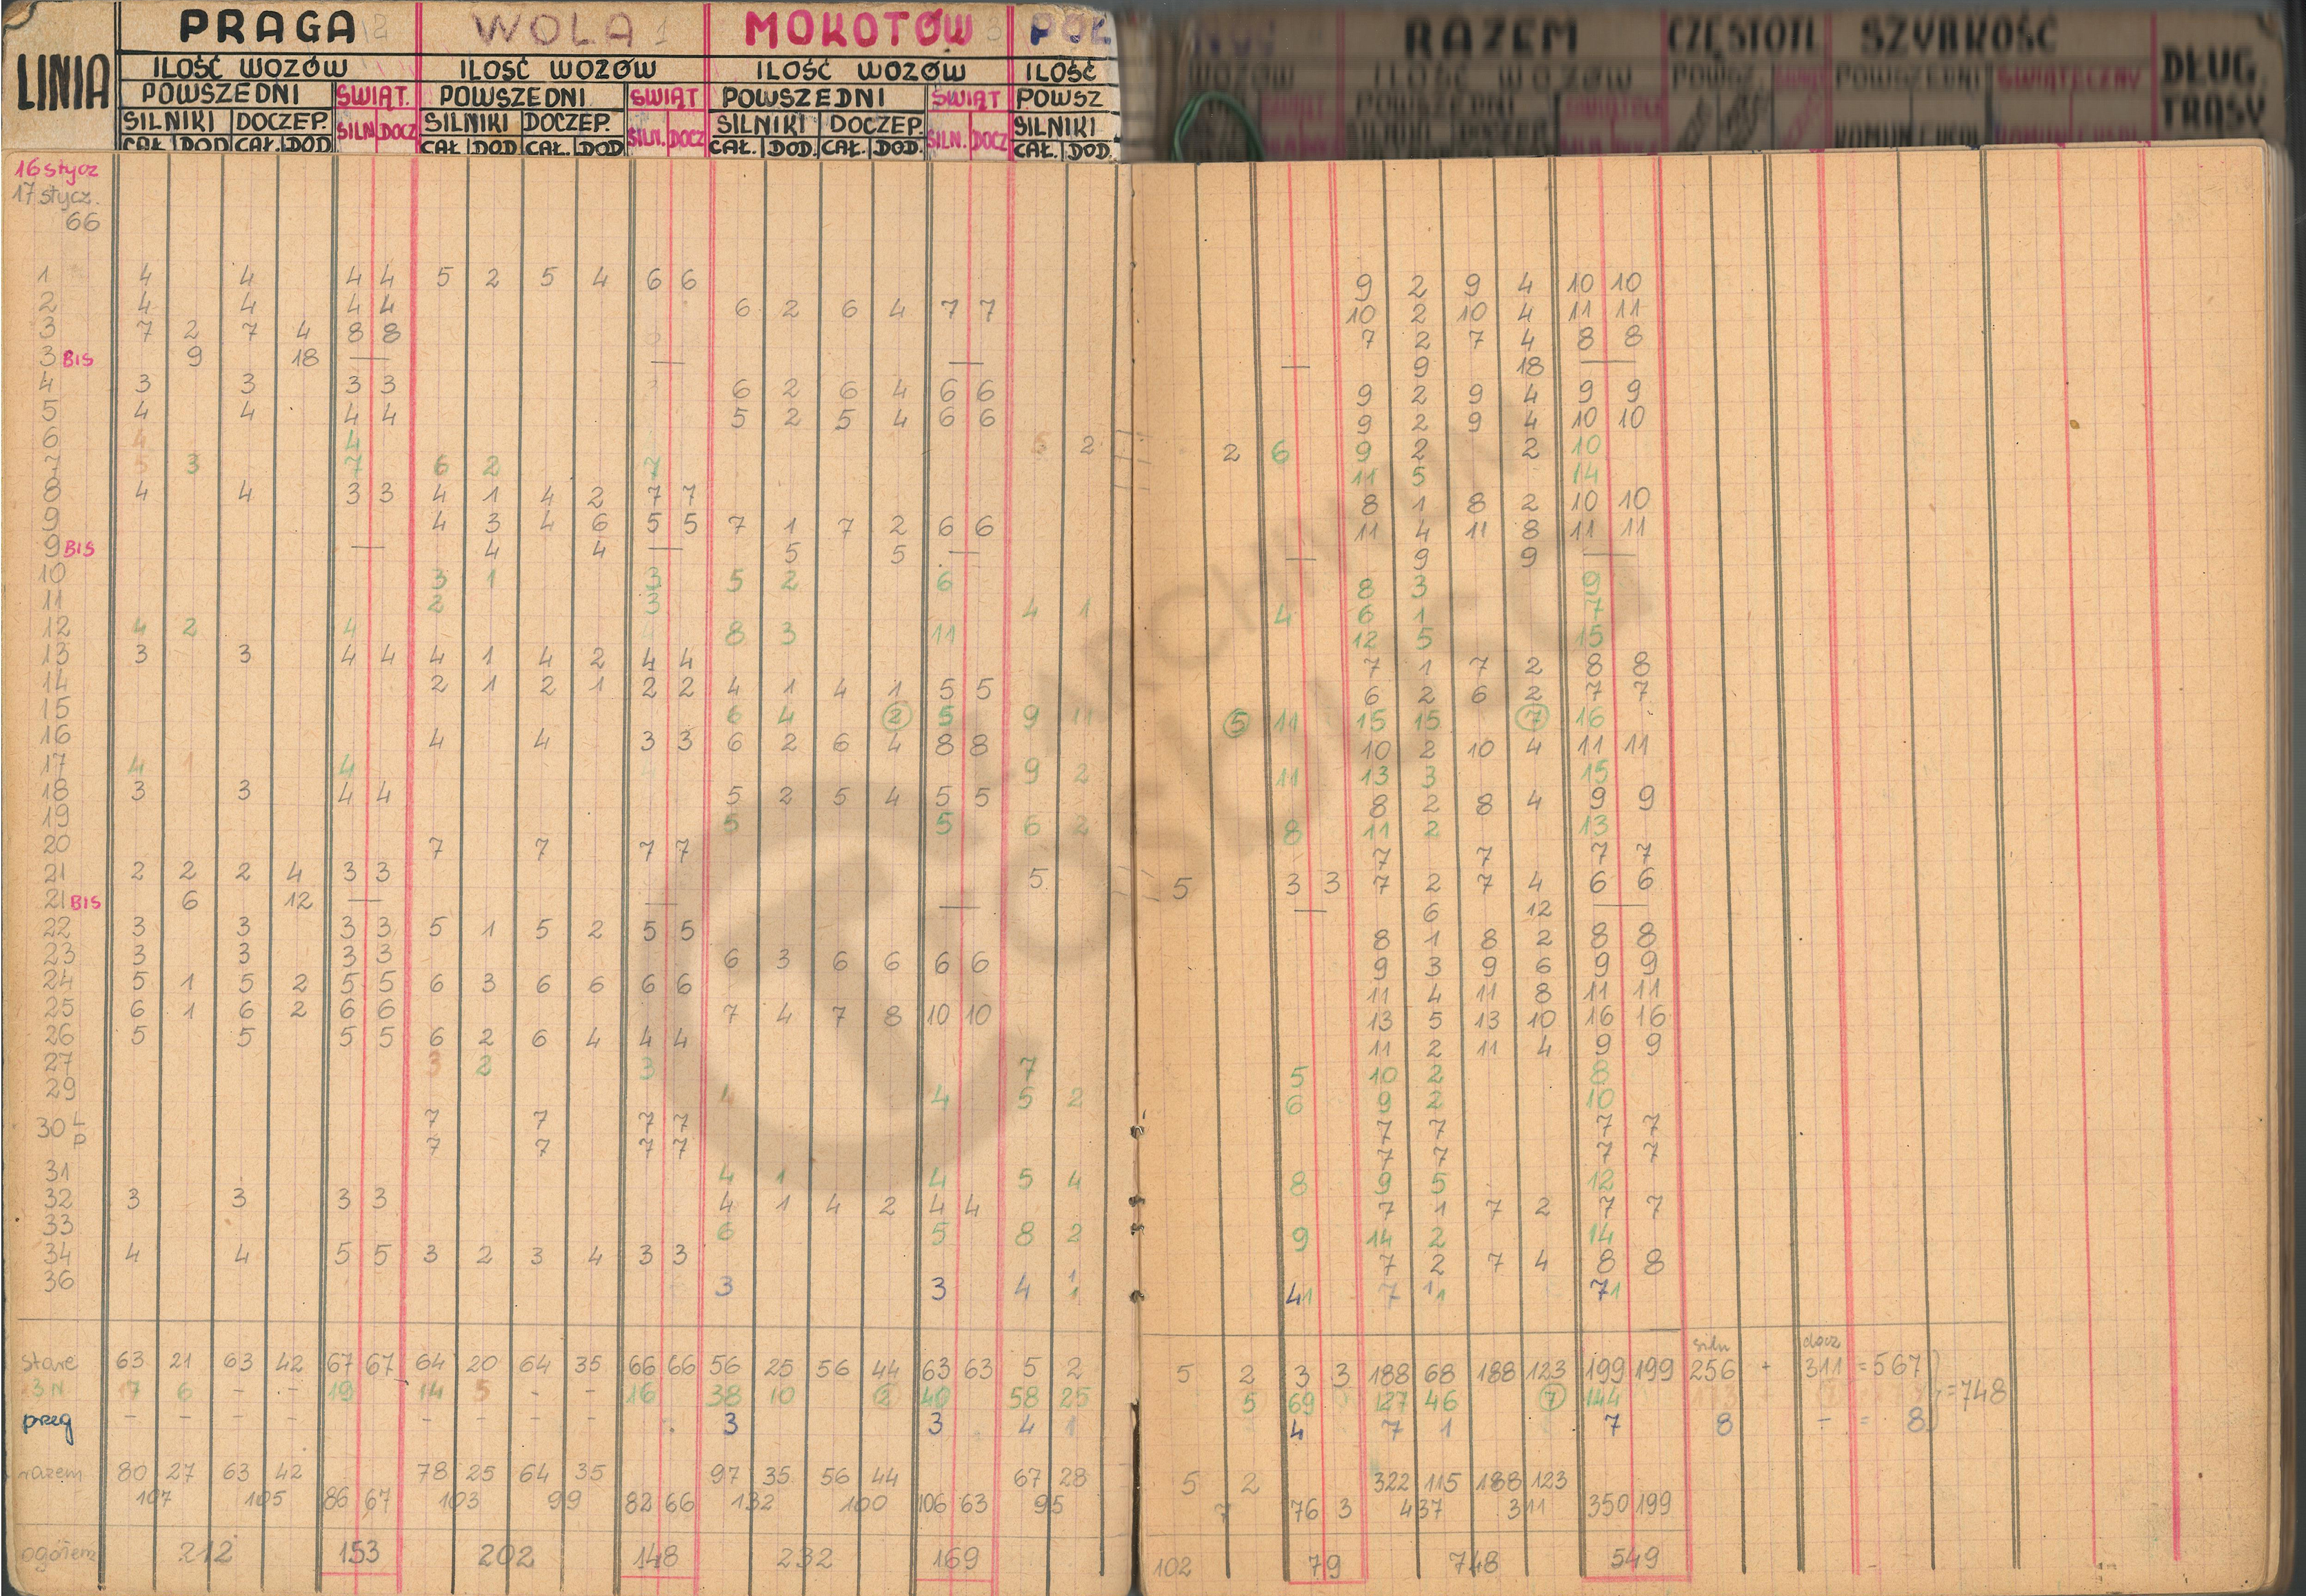 LINIA PRAGA 2 WOLA 1 MOKOTÓW 3 RAZEM CZĘSTOTL SZYBKOŚĆ DŁUG. TRASY
ILOŚĆ WOZÓW ILOŚĆ WOZÓW ILOŚĆ WOZÓW ILOŚĆ WOZÓW ILOŚĆ WOZÓW
POWSZEDNI ŚWIĄT. POWSZEDNI ŚWIĄT POWSZEDNI ŚWIĄT POWSZ POWSZEDNI POWSZ. POWSZEDNI ŚWIĄTECZNY
SILNIKI DOCZEP. SILN DOCZ SILNIKI DOCZEP. SILN. DOCZ SILNIKI DOCZEP. SILN. DOCZ SILNIKI
CAŁ. DOD CAŁ. DOD CAŁ DOD CAŁ. DOD CAŁ. DOD. CAŁ. DOD. CAŁ. DOD.
16 stycz
17 stycz.
66
1 4 4 4 4 5 2 5 4 6 6 9 2 9 4 10 10
2 4 4 4 4 6 2 6 4 7 7 10 2 10 4 11 11
3 7 2 7 4 8 8 7 2 7 4 8 8
3 BIS 9 18 — — — — 9 18 —
4 3 3 3 3 6 2 6 4 6 6 9 2 9 4 9 9
5 4 4 4 4 5 2 5 4 6 6 9 2 9 4 10 10
6 4 4 5 2 2 6 9 2 2 10
7 5 3 7 6 2 7 11 5 14
8 4 4 3 3 4 1 4 2 7 7 8 1 8 2 10 10
9 4 3 4 6 5 5 7 1 7 2 6 6 11 4 11 8 11 11
9 BIS — 4 4 — 5 5 — — 9 9 —
10 3 1 3 5 2 6 8 3 9
11 2 3 4 1 4 6 1 7
12 4 2 4 8 3 11 12 5 15
13 3 3 4 4 4 1 4 2 4 4 7 1 7 2 8 8
14 2 1 2 1 2 2 4 1 4 1 5 5 6 2 6 2 7 7
15 6 4 2 5 9 11 5 11 15 15 7 16
16 4 4 3 3 6 2 6 4 8 8 10 2 10 4 11 11
17 4 1 4 9 2 11 13 3 15
18 3 3 4 4 5 2 5 4 5 5 8 2 8 4 9 9
19 5 5 6 2 8 11 2 13
20 7 7 7 7 7 7 7 7
21 2 2 2 4 3 3 5 5 3 3 7 2 7 4 6 6
21 BIS 6 12 — — — — 6 12 —
22 3 3 3 3 5 1 5 2 5 5 8 1 8 2 8 8
23 3 3 3 3 6 3 6 6 6 6 9 3 9 6 9 9
24 5 1 5 2 5 5 6 3 6 6 6 6 11 4 11 8 11 11
25 6 1 6 2 6 6 7 4 7 8 10 10 13 5 13 10 16 16
26 5 5 5 5 6 2 6 4 4 4 11 2 11 4 9 9
27 3 2 3 7 5 10 2 8
29 4 4 5 2 6 9 2 10
30 L 7 7 7 7 7 7 7 7
P 7 7 7 7 7 7 7 7
31 4 1 4 5 4 8 9 5 12
32 3 3 3 3 4 1 4 2 4 4 7 1 7 2 7 7
33 6 5 8 2 9 14 2 14
34 4 4 5 5 3 2 3 4 3 3 7 2 7 4 8 8
36 3 3 4 1 1 41 7 1 1 71
siln docz
stare 63 21 63 42 67 67 64 20 64 35 66 66 56 25 56 44 63 63 5 2 5 2 3 3 188 68 188 123 199 199 256 + 311 = 567
13N 17 6 - - 19 14 5 - - 16 38 10 2 40 58 25 5 69 127 46 7 144 173 = 748
preg - - - - - - - - 3 3 4 1 4 7 1 7 8 - = 8
razem 80 27 63 42 78 25 64 35 97 35 56 44 67 28 5 2 322 115 188 123
107 105 86 67 103 99 82 66 132 100 106 63 95 7 76 3 437 311 350 199
ogółem 212 153 202 148 232 169 102 79 748 549